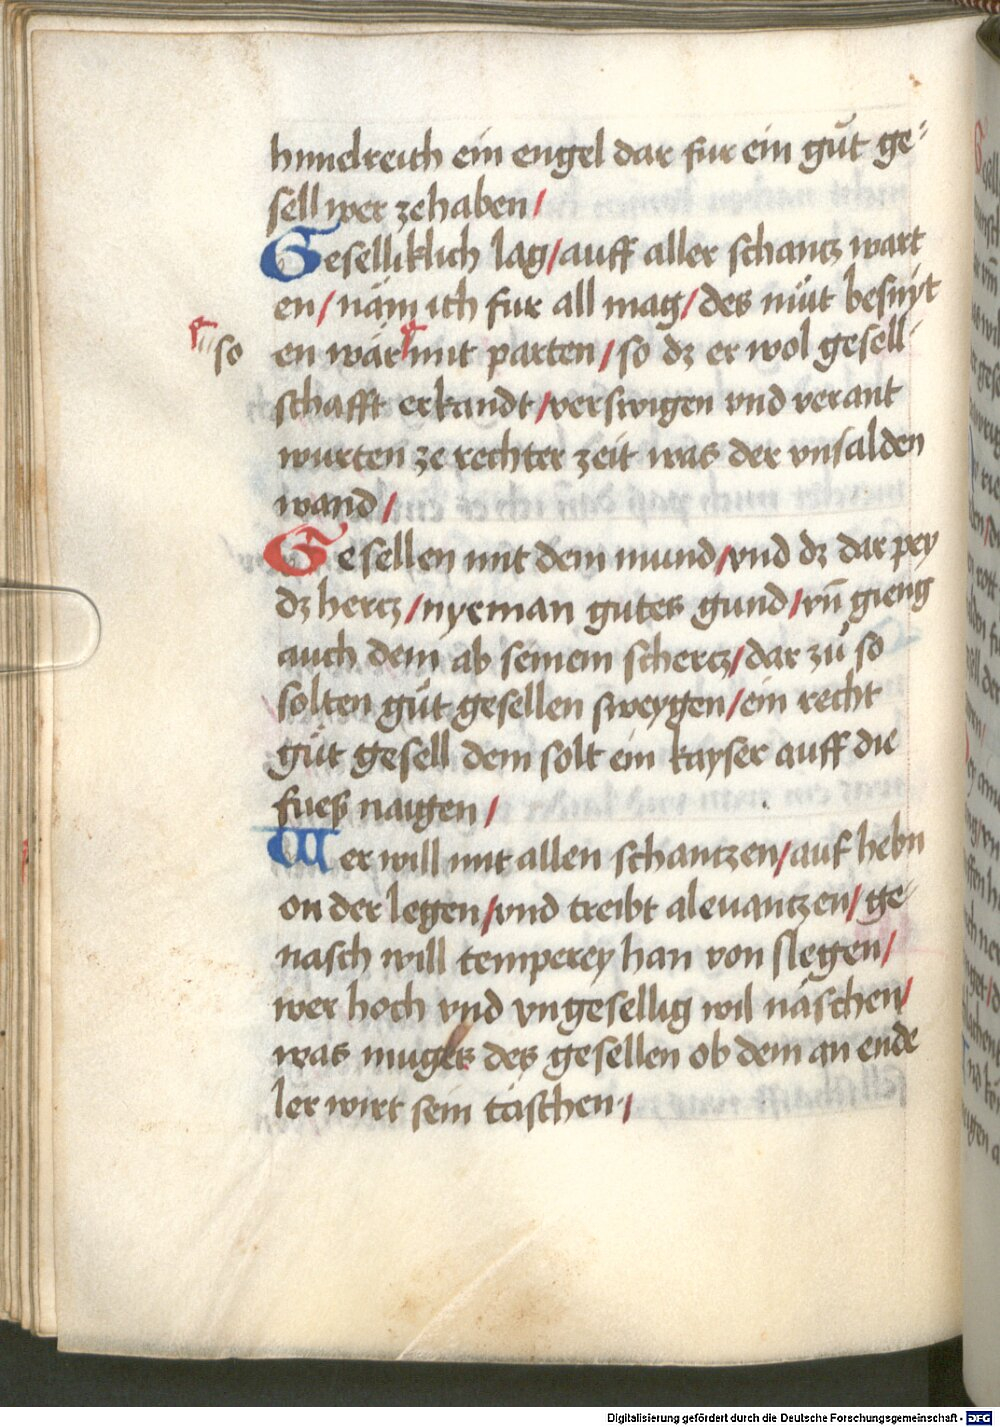 himelreich ein engel dar fur ein gůt ge⸗
sell wer zehaben /
Geselliklich lag / auff aller schantz wart
en / näm ich fur all mag / des müt besnyt
so en wär mit parten / so dz er wol gesell⸗
schafft erkandt / verswigen vnd verant
wurten ze rechter zeit was der vnsalden
wand /
Gesellen mit dem mund / vnd dz dar pey
dz hercz / nyeman gutes gund / vn̄ gieng
auch dem ab seinem schercz / dar zů so
solten gůt gesellen sweygen / ein recht
gůt gesell dem solt ein kayser auff die
fuesß naigen /
Wer will mit allen schantzen / auf hebn
on der legen / vnd treibt aleuantzen / ge⸗
nasch will temperey han von slegen /
wer hoch vnd vngesellig wil näschen /
was mugets des gesellen ob dem an ende
lër wirt sein täschen · /
Digitalisierung gefördert durch die Deutsche Forschungsgemeinschaft - DFG